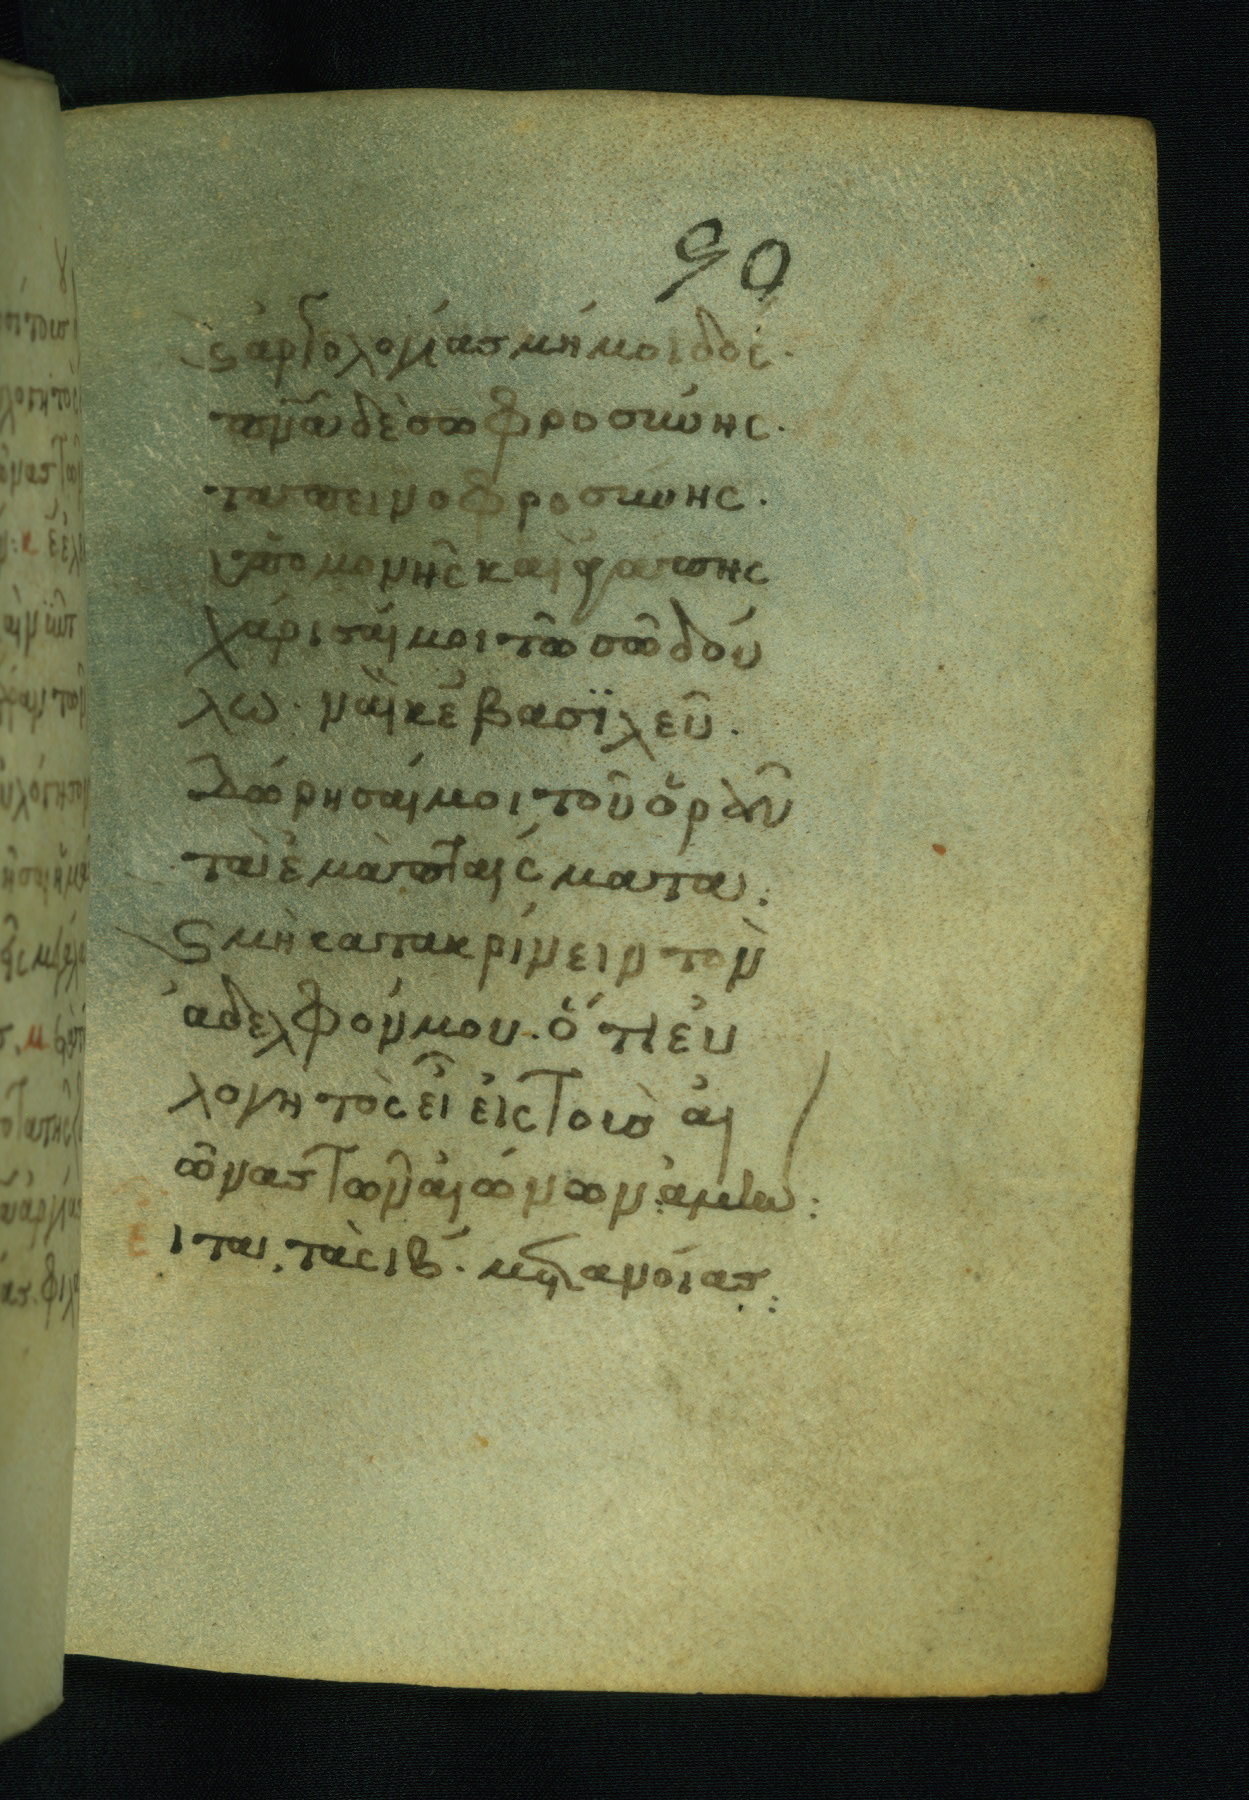 90
ϛ ἀργολογίας μή μοι δός.
πν̅α δὲ σωφροσύνης.
ταπεινοφροσύνης.
ὑπομονῆς καὶ ἀγάπης
χάρισαί μοι τῶ σῶ δού
λω. ναὶ κ̅ε βασϊλεῦ.
δώρησαί μοι τοῦ ὁρᾶν
τὰ ἐμὰ πταίσματα:
ϛ μὴ κατακρίνειν τὸν
ἀδελφόν μου. ὅτι εὐ
λογητὸς εἶ εἰς τοὺς αἰ
ῶνας τῶν αἰώνων: ἀμήν:
εἶτα, τὰς ιβ. μετανοίας: